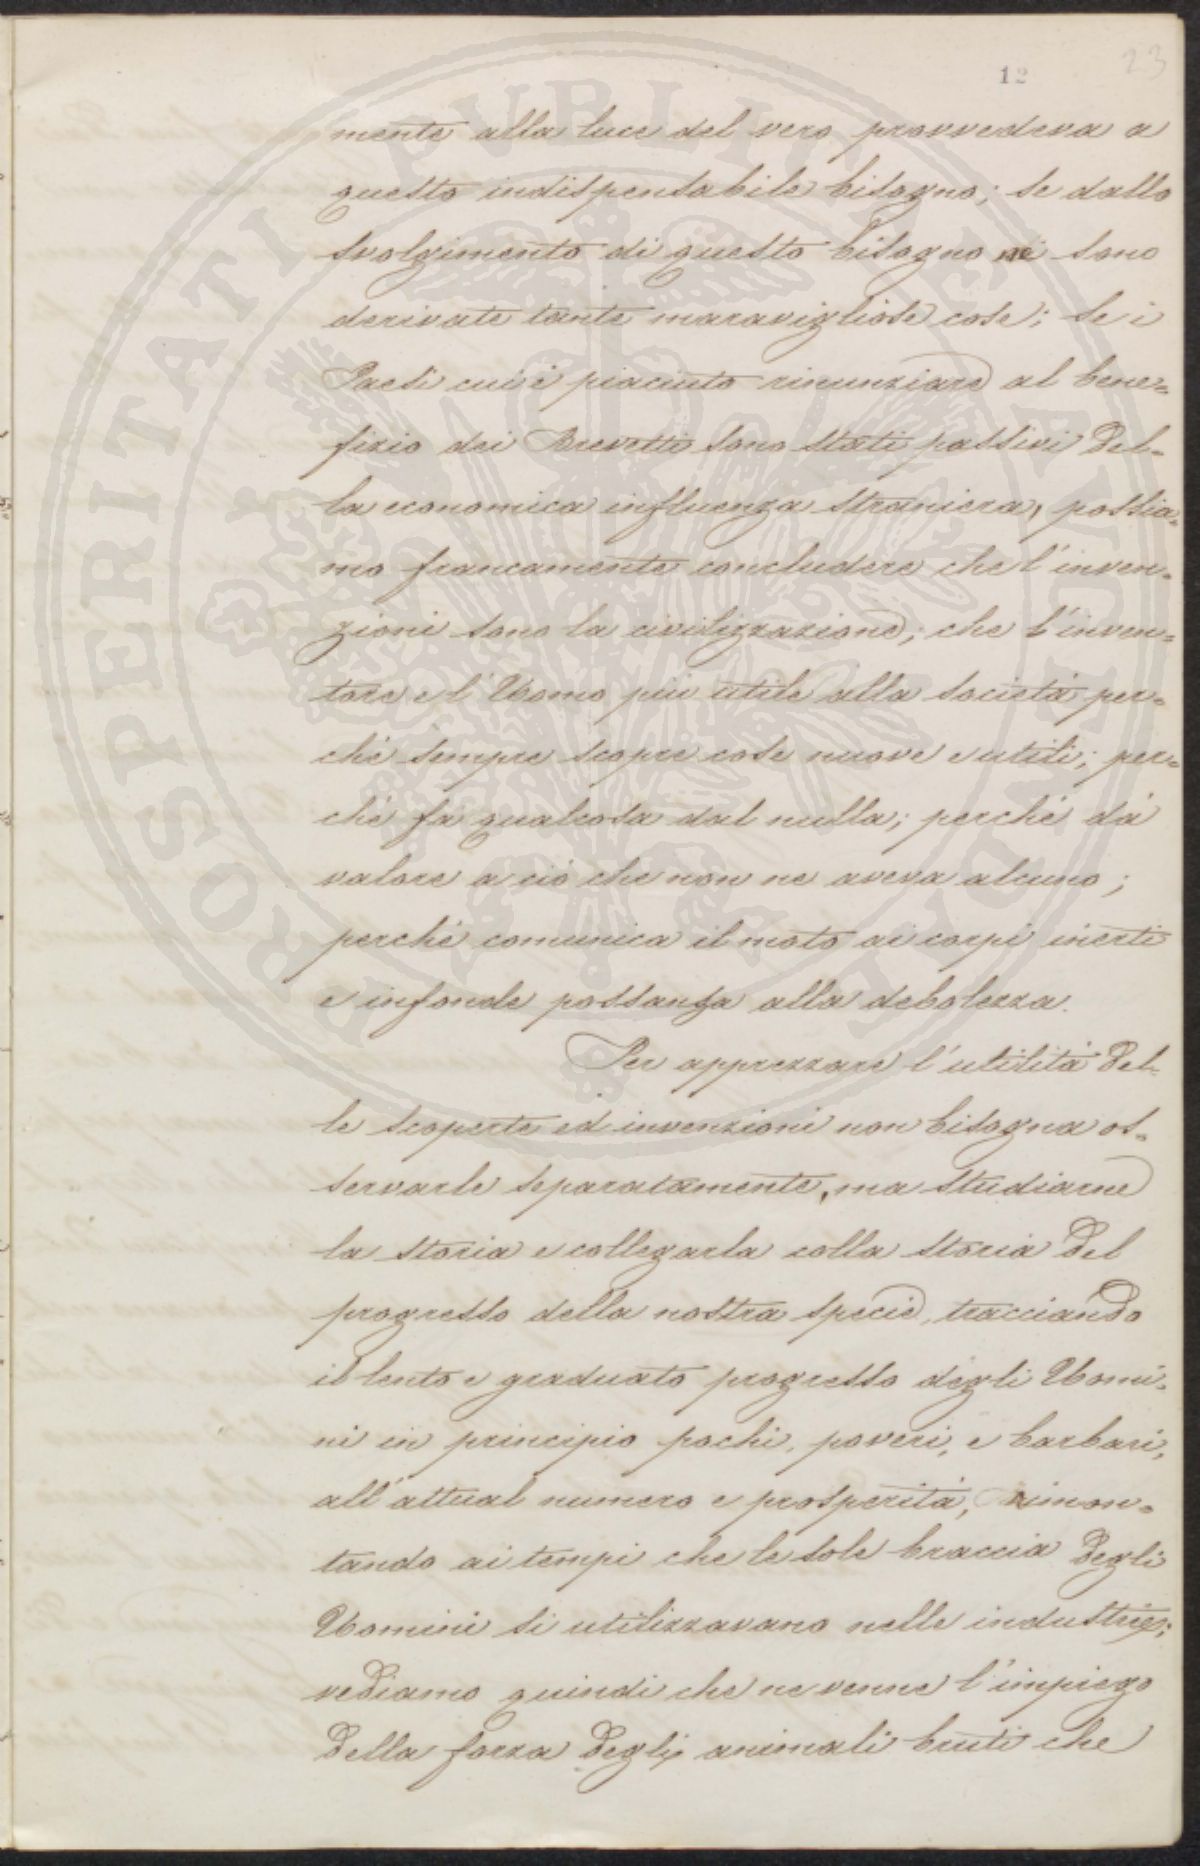 12
23
mente alla luce del vero provvedeva a
questo indispensabile bisogno; se dallo
svolgimento di questo bisogno ne sono
derivate tante maravigliose cose; se i
Paesi cui è piaciuto rinunziare al bene=
fizio dei Brevetti sono stati passivi del=
la economica influenza straniera, possia=
mo francamente concludere che l'inven=
zioni sono la civilizzazione; che l'inven=
tore e l'Uomo più utile alla società per=
chè sempre scopre cose nuove e utili; per=
chè fà qualcosa dal nulla; perchè dà
valore a ciò che non ne aveva alcuno;
perchè comunica il moto ai corpi inerti
e infonde possanza alla debolezza.
Per apprezzare l'utilità del=
le scoperte ed invenzioni non bisogna os=
servarle separatamente, ma studiarne
la storia e collegarla colla storia del
progresso della nostra specie, tracciando
il lento e graduato progresso degli Uomi=
ni in principio pochi, poveri, e barbari,
all'attual numero e prosperità, rimon=
tando ai tempi che le sole braccia degli
Uomini si utilizzavano nelle industrie;
vediamo quindi che ne venne l'impiego
della forza degli animali bruti che
PROSPERITATI PVBLICAE AVGENDAE